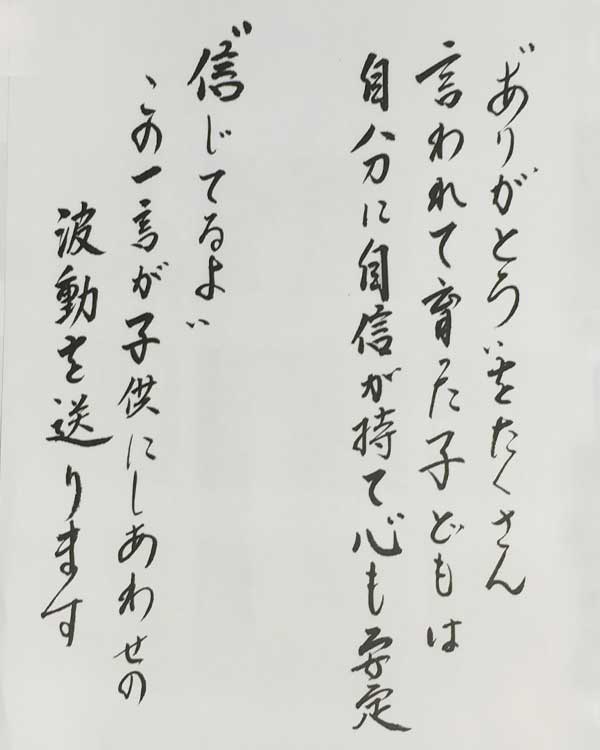 "ありがとう"をたくさん
言われて育った子どもは
自分に自信が持て心も安定
"信じてるよ"
、この一言が子供にしあわせの
波動を送ります